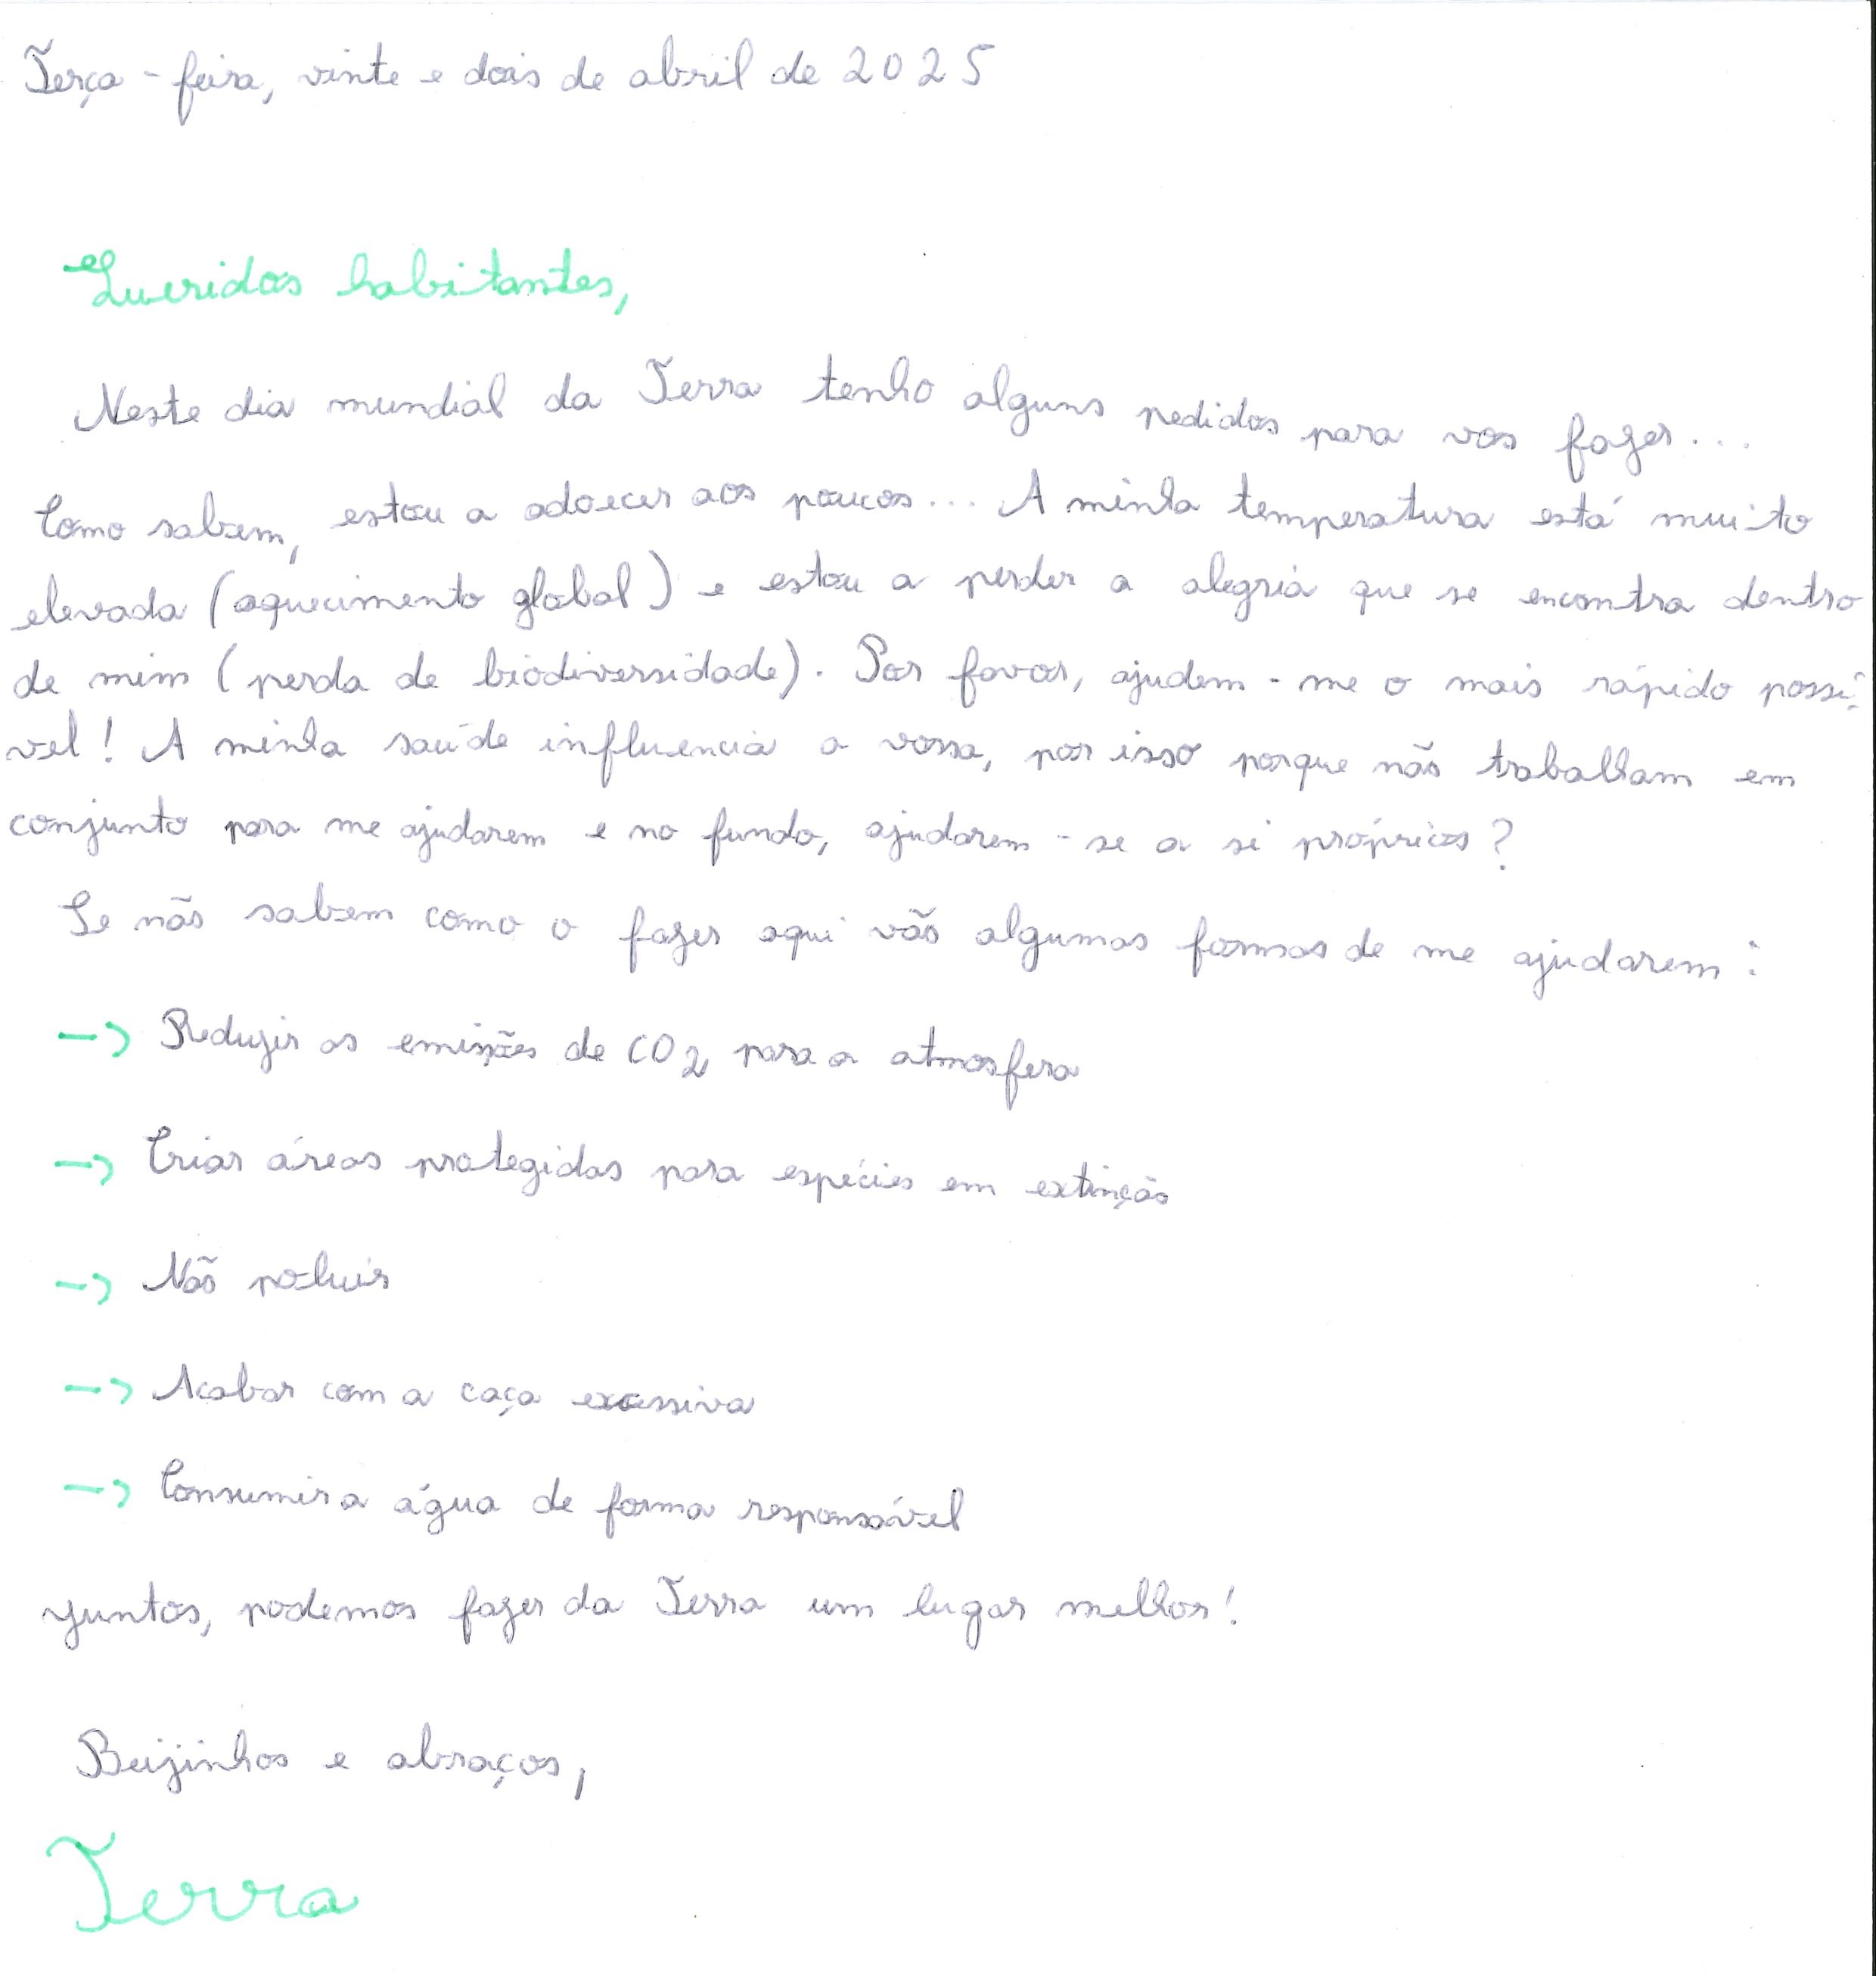 Terça-feira, vinte e dois de abril de 2025
Queridos habitantes,
Neste dia mundial da Terra tenho alguns pedidos para vos fazer...
Como sabem, estou a adoecer aos poucos... A minha temperatura está muito
elevada (aquecimento global) e estou a perder a alegria que se encontra dentro
de mim (perda de biodiversidade). Por favor, ajudem-me o mais rápido possí-
vel! A minha saúde influencia a vossa, por isso porque não trabalham em
conjunto para me ajudarem e no fundo, ajudarem-se a si próprios?
Se não sabem como o fazer aqui vão algumas formas de me ajudarem:
-> Reduzir as emissões de CO2 para a atmosfera
-> Criar áreas protegidas para espécies em extinção
-> Não poluir
-> Acabar com a caça excessiva
-> Consumir a água de forma responsável
Juntos, podemos fazer da Terra um lugar melhor!
Beijinhos e abraços,
Terra